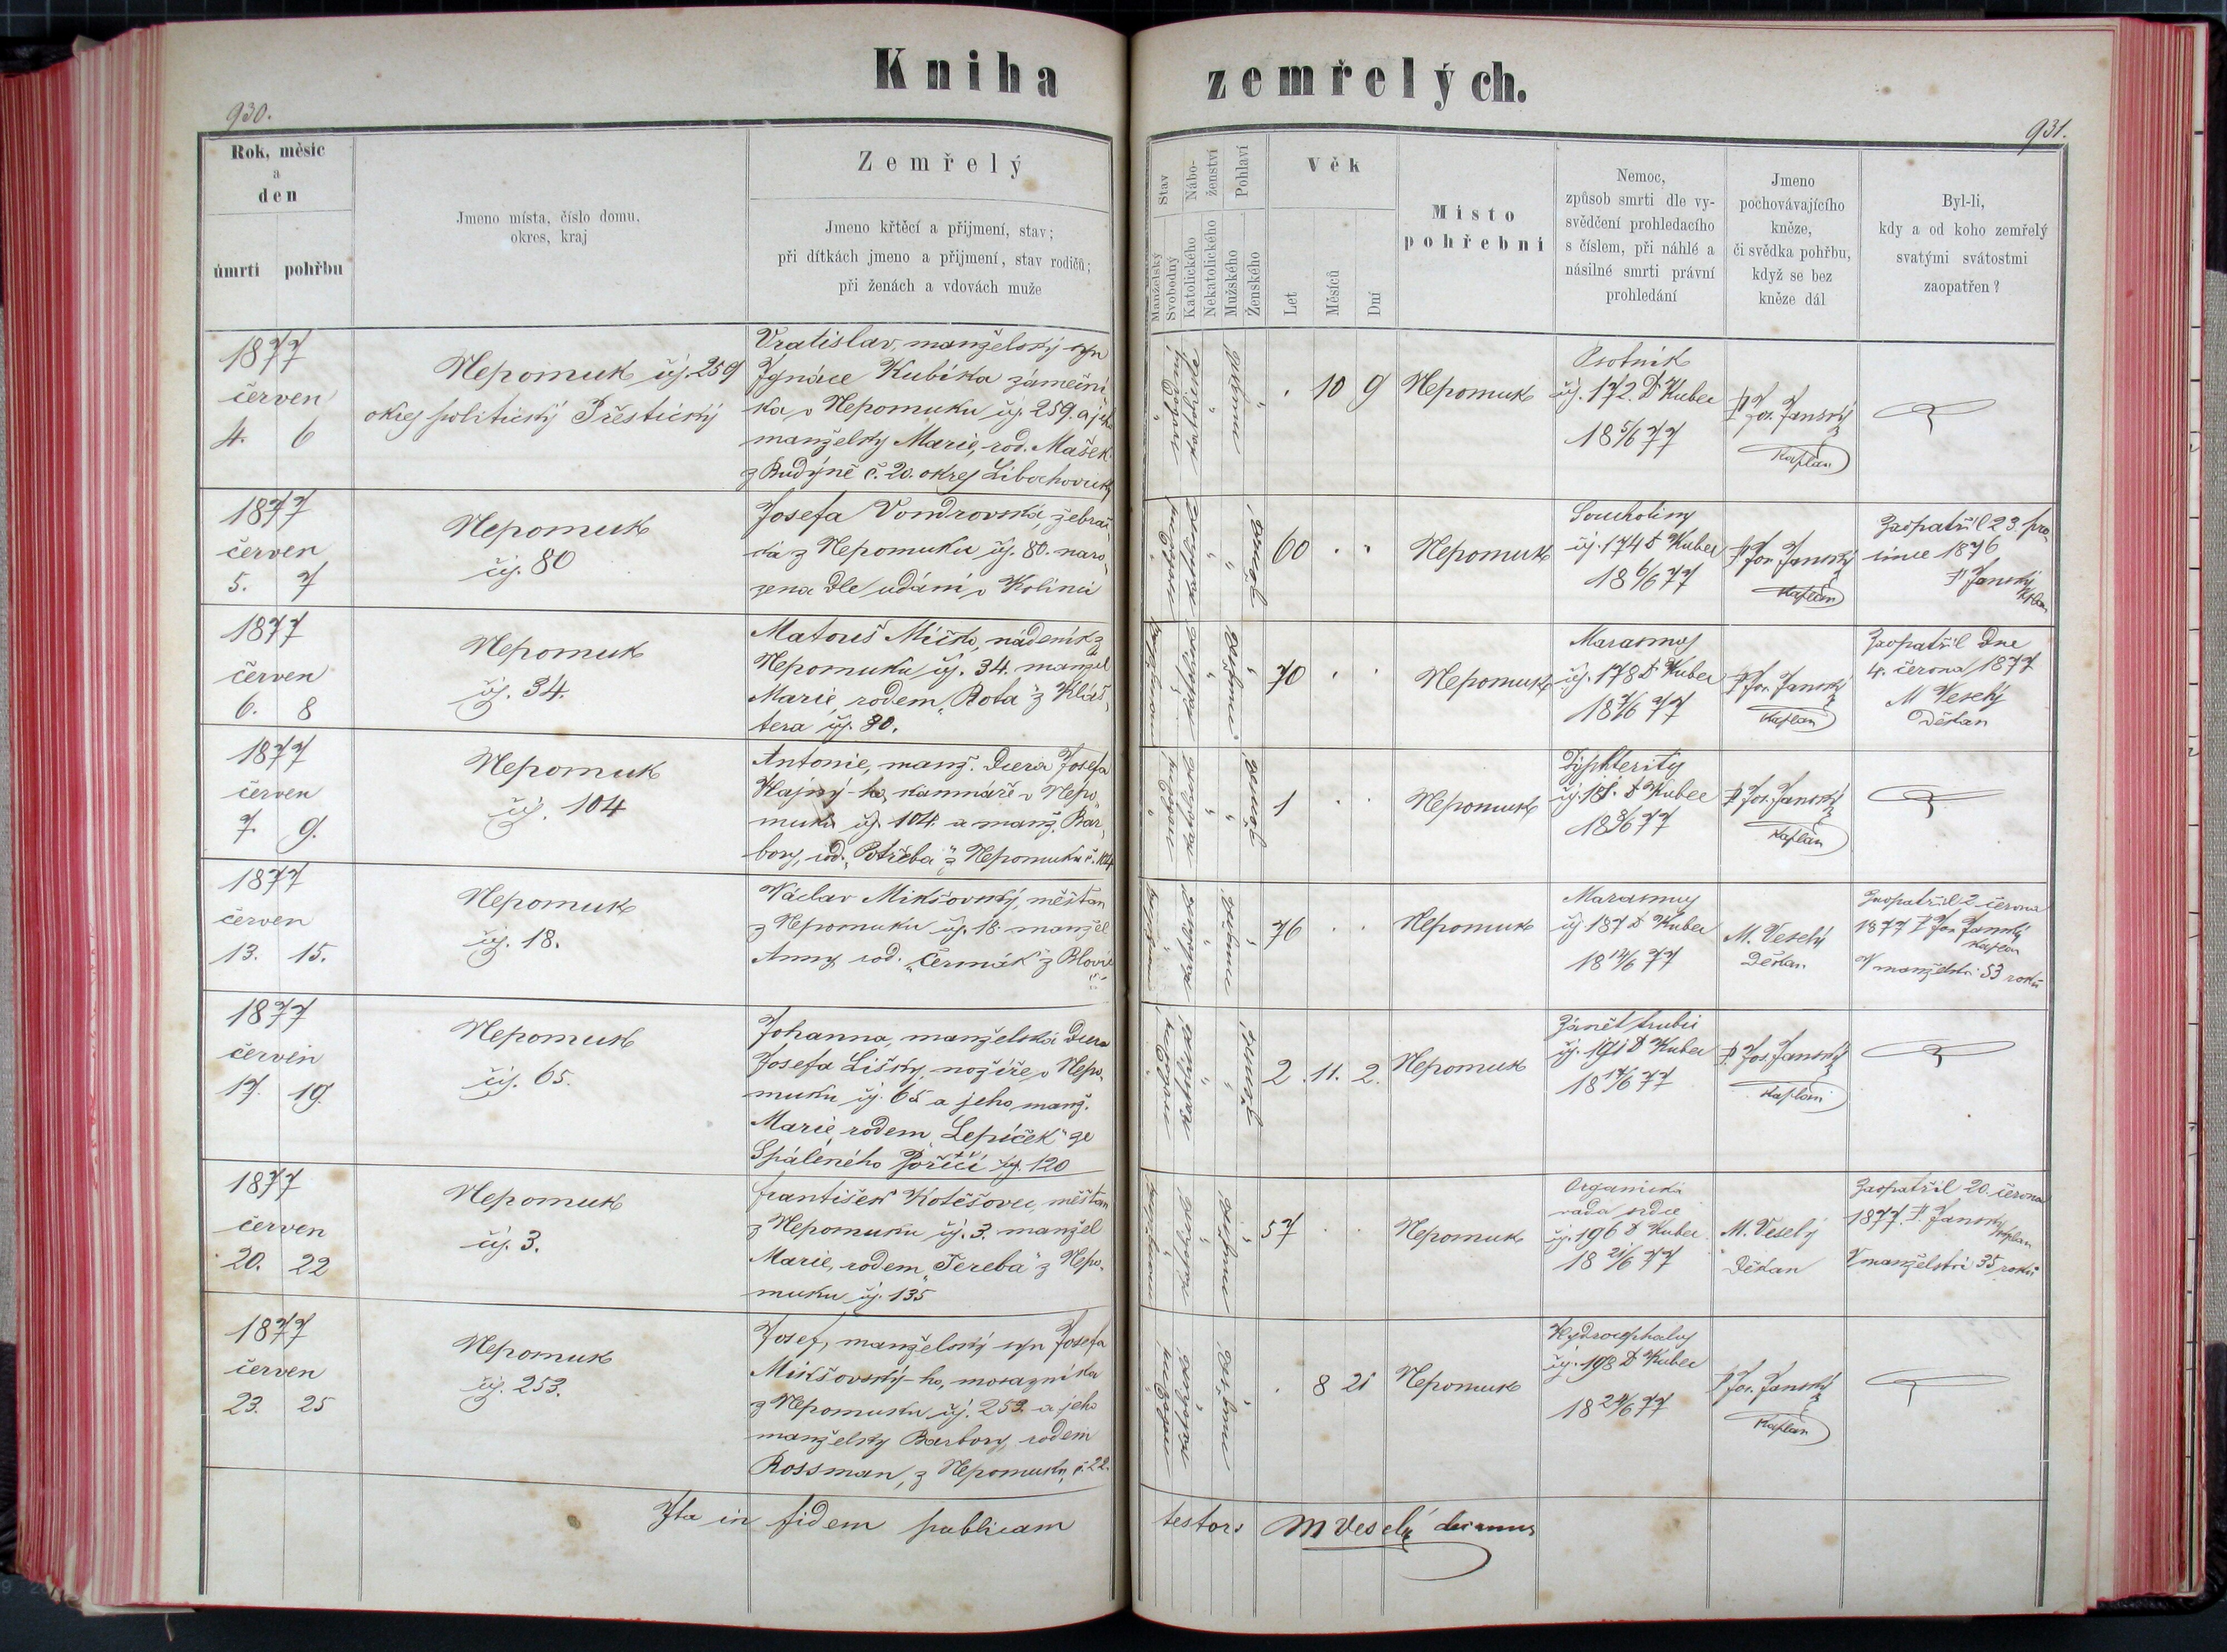 Kniha zemřelých.
930.
931.
Rok, měsíc
a
den
úmrtí pohřbu
Jmeno místa, číslo domu,
okres, kraj
Zemřelý
Jmeno křtěcí a přijmení, stav;
při dítkách jmeno a přijmení, stav rodičů;
při ženách a vdovách muže
Stav
Manželský
Svobodný
Nábo-
ženství
Katolického
Nekatolického
Pohlaví
Mužského
Ženského
Věk
Let
Měsíců
Dní
Místo
pohřební
Nemoc,
způsob smrti dle vy-
svědčení prohledacího
s číslem, při náhlé a
násilné smrti právní
prohledání
Jmeno
pochovávajícího
kněze,
či svědka pohřbu,
když se bez
kněze dál
Byl-li,
kdy a od koho zemřelý
svatými svátostmi
zaopatřen?
1877
červen
4. 6
Nepomuk čj. 259
okres politický Přeštický
Vratislav, manželský syn
Ignáce Kubíka zámeční
ka v Nepomuku čj. 259. a jeho
manželky Marie, rod. Mašek
z Budýně č. 20. okres Libochovick
10 9
Nepomuk
Psotník
čj. 172. Dr Kubec
18 5/6 77
P Jos. Janský
Kaplan
1877
červen
5. 7
Nepomuk
čj. 80
Josefa Vondrovská, žebrač
ka z Nepomuku čj. 80. naro
zena dle udání v Kolinci
60
Nepomuk
Souchotiny
čj. 174 Dr Kubec
18 6/6 77
P Jos Janský
Kaplan
Zaopatřil 23. pro
since 1876
P Janský
Kplan
1877
červen
6. 8
Nepomuk
čj. 34.
Matouš Míčko, nádeník z
Nepomuku čj. 34. manžel
Marie, rodem "Bota" z Kláš
tera čj. 80.
70
Nepomuk
Marasmus
čj. 178 Dr Kubec
18 7/6 77
P Jos. Janský
Kaplan
Zaopatřil dne
4. června 1877
M Veselý
Děkan
1877
červen
7. 9.
Nepomuk
čj. 104
Antonie, manž. dcera Josefa
Hajný-ho, kamnáře v Nepo
muku čj. 104. a manž. Bar
bory, rod. "Potřeba" z Nepomuku č. 104
1
Nepomuk
Dyphterity
čj. 181. Dr Kubec
18 8/6 77
P Jos. Janský
Kaplan
1877
červen
13. 15.
Nepomuk
čj. 18.
Václav Mikšovský, měšťan
z Nepomuku čj. 18. manžel
Anny, rod. "Čermák" z Blovic
76
Nepomuk
Marasmus
čj. 187 Dr Kubec
18 14/6 77
M. Veselý
Děkan
Zaopatřil 2 června
1877 P Jos Janský
Kaplan
V manželství 53 roků
1877
červen
17. 19.
Nepomuk
čj. 65.
Johanna, manželská dcera
Josefa Lišky, nožíře v Nepo
muku čj. 65 a jeho manž.
Marie, rodem "Lepíček" ze
Spáleného Poříčí čj. 120
2. 11. 2.
Nepomuk
Zánět trubic
čj. 191 Dr Kubec
18 17/6 77
P. Jos. Janský
Kaplan
1877
červen
20. 22
Nepomuk
čj. 3.
František Kotěšovec, měšťan
z Nepomuku čj. 3. manžel
Marie, rodem "Tereba" z Nepo
muku čj. 135
57
Nepomuk
Organická
vada srdce
čj. 196 Dr Kubec
18 21/6 77
M. Veselý
Děkan
Zaopatřil 20. června
1877. P. Janský
Kaplan
V manželství 35 roků
1877
červen
23. 25
Nepomuk
čj. 253.
Josef, manželský syn Josefa
Mikšovský-ho, mosazníka
z Nepomuku čj. 253. a jeho
manželky Barbory, rodem
Rossman, z Nepomuku, č. 22.
8 21
Nepomuk
Hydrocephalus
čj. 198 Dr Kubec
18 24/6 77
P Jos. Janský
Kaplan
Ita in fidem publicam testor: M Veselý decanus